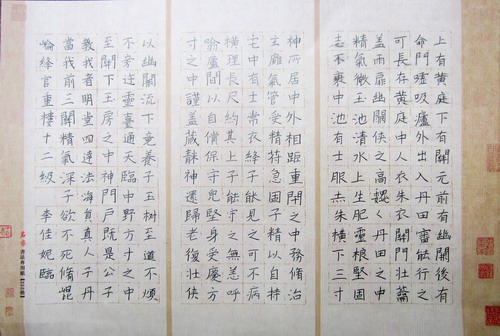 上有黄庭下有關元前有幽闕後有
命門噓吸廬外出入丹田審能行之
可長存黄庭中人衣朱衣關門壯籥
盖兩扉幽闕俠之高巍巍丹田之中
精氣微玉池清水上生肥靈根堅固
志不衰中池有士服赤朱横下三寸
神所居中外相距重閉之中務脩治
玄廱氣管受精符急固子精以自持
宅中有士常衣絳子能見之可不病
横理長尺約其上子能守之無恙呼
噏廬間以自償保守完堅身受慶方
寸之中謹盖藏精神還歸老復壯俠
以幽闕流下竟養子玉樹至道不煩
不旁迕靈臺通天臨中野方寸之中
至關下玉房之中神門户既是公子
教我者明堂四達法海員真人子丹
當我前三關精氣深子欲不死脩崑
崘絳宫重樓十二級 李佳妮臨
書法專用紙